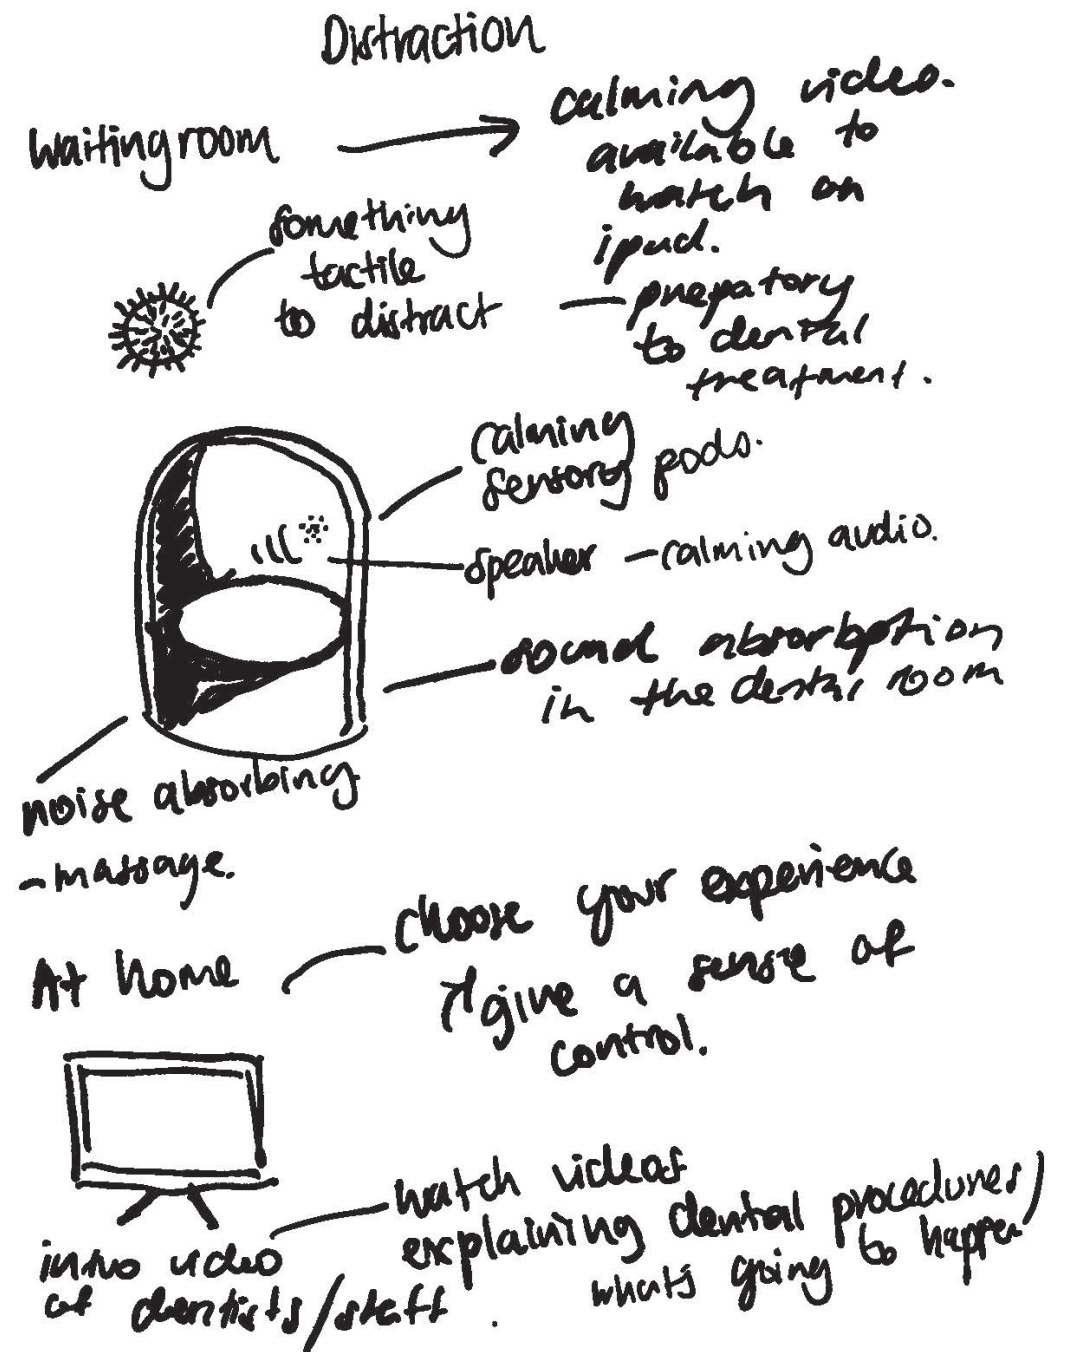 Distraction
Waiting room
calming video.
available to
watch on
ipad.
something
tactile
to distract
prepatory
to dental
treatment.
calming
sensory pods.
speaker - calming audio.
sound absorbption
in the dental room
noise absorbing
- massage.
At home
choose your experience
give a sense of
control.
watch videos
explaining dental procedures/
whats going to happen
intro video
of dentists/staff.